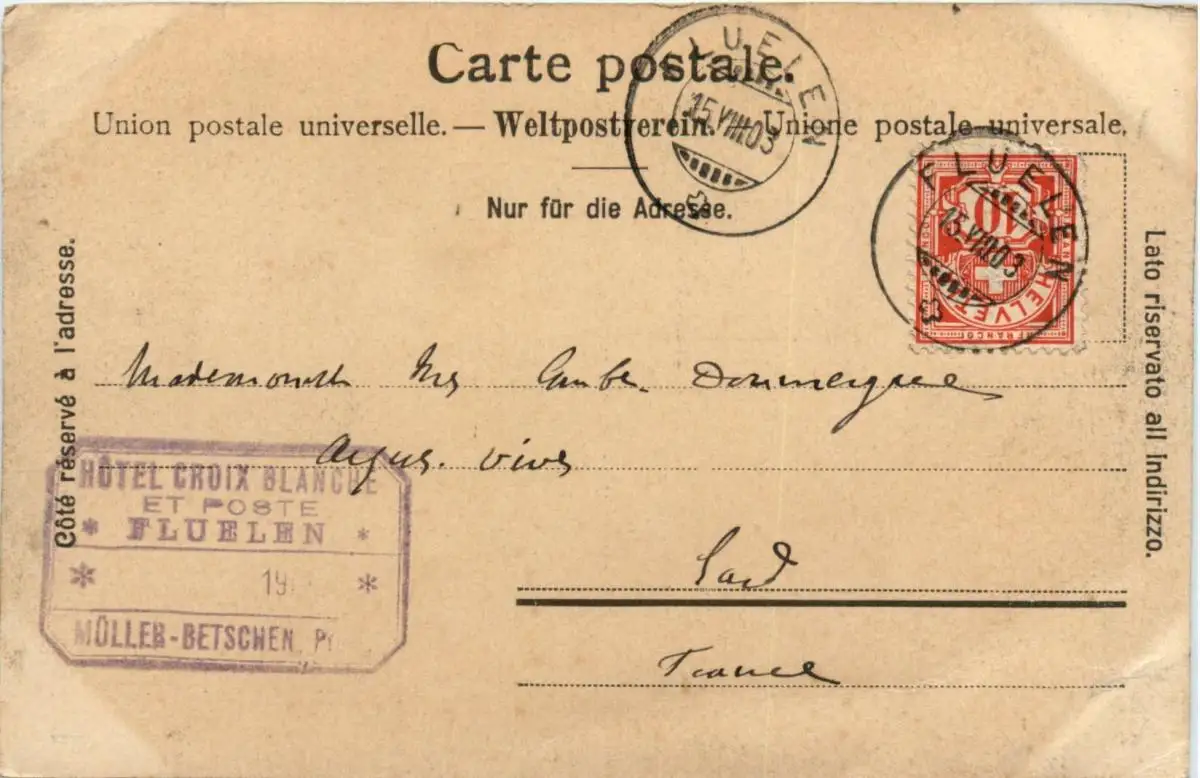 Carte postale.
Union postale universelle. — Weltpostverein. — Unione postale universale.
Nur für die Adresse.
Côté réservé à l'adresse.
Lato riservato all Indirizzo.
FLUELEN
15.VIII.03
FLUELEN
15.VIII.03
10
HELVET
FRANCO
Mademoiselle Doumergue
Aigues. Vives
Gard
France
HÔTEL CROIX BLANCHE
ET POSTE
* FLUELEN *
* 19 *
MÜLLER-BETSCHEN, Pr